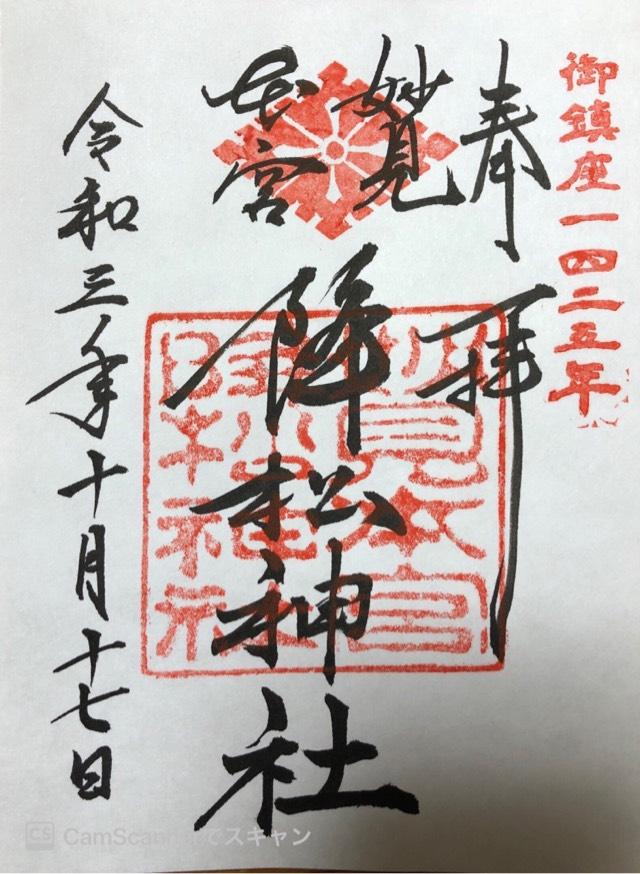 御鎮座一四二五年
奉拝
妙見
本宮
降松神社
令和三年十月十七日
CS CamScannerでスキャン